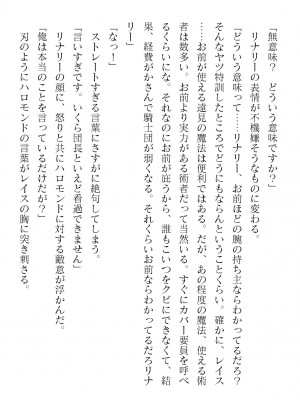 「無意味？　どういう意味ですか？」
　リナリーの表情が不機嫌そうなものに変わる。
「どういう意味って……リナリー、お前ほどの腕の持ち主ならわかってるだろ？
そんなヤツ特訓したところでどうにもならんということくらい。確かに、レイス
……お前が使える遠見の魔法は便利ではある。だが、あの程度の魔法、使える術
者は数多い。お前より実力がある術者だって当然いる。すぐにカバー要員を呼べ
るくらいにな。それなのにお前が庇うから、誰もこいつをクビにできなくて、結
果、経費がかさんで騎士団が弱くなる。それくらいお前ならわかってるだろリナ
リー」
「なっ！」
　ストレートすぎる言葉にさすがに絶句してしまう。
「言いすぎです。いくら団長といえど看過できません」
　リナリーの顔に、怒りと共にハロモンドに対する敵意が浮かんだ。
「俺は本当のことを言っているだけだが？」
　刃のようにハロモンドの言葉がレイスの胸に突き刺さる。